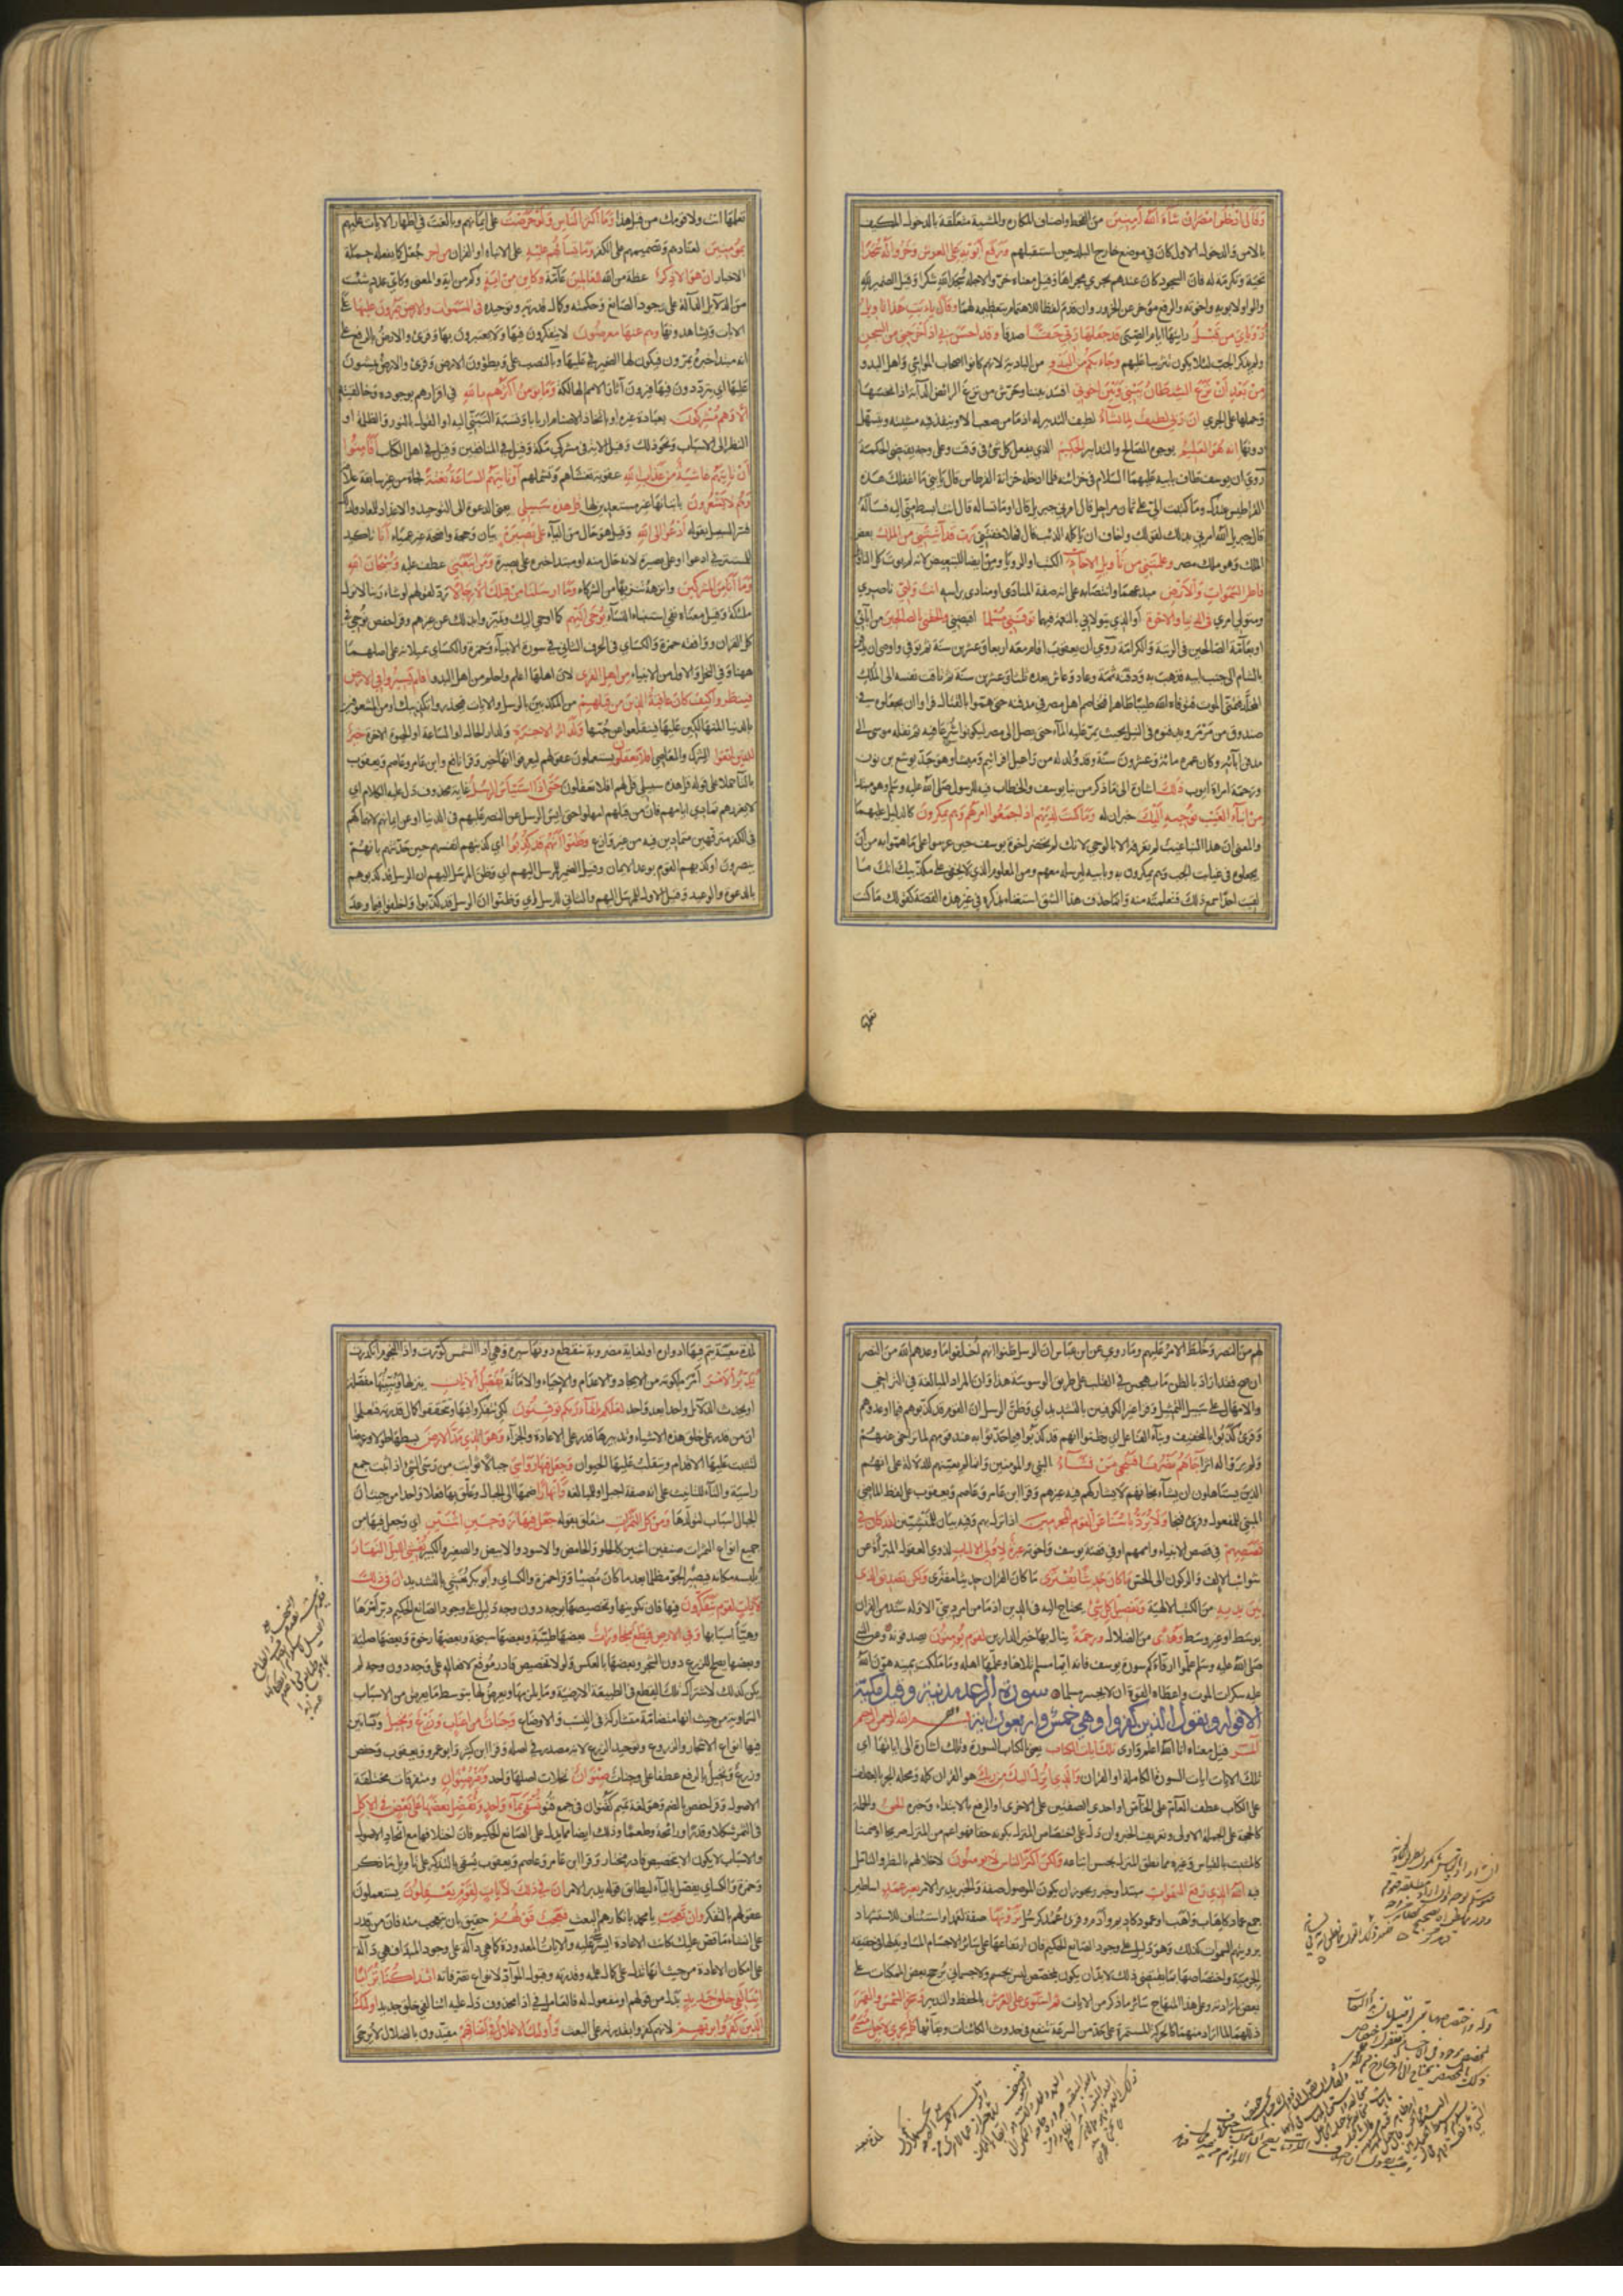 وقال ادخلوا مصر ان شاء الله آمنين من القحط واصناف المكاره والمشية متعلقة بالدخول المكيف
بالامن والدخول الاول كان في موضع خارج البلد حين استقبلهم ورفع ابويه على العرش وخروا له سجدا
تحية وتكرمة له فان السجود كان عندهم يجري مجراها وقيل معناه خروا لاجله سجدا لله شكرا وقيل الضمير لله
والواو لابويه واخوته والرفع مؤخر عن الخرور وان قدم لفظا للاهتمام بتعظيمه لهما وقال يا ابت هذا تاويل
رؤياي من قبل رايتها ايام الصبى قد جعلها ربي حقا صدقا وقد احسن بي اذ اخرجني من السجن
ولم يذكر الجب لئلا يكون تثريبا عليهم وجاء بكم من البدو من البادية لانهم كانوا اصحاب المواشي واهل البدو
من بعد ان نزغ الشيطان بيني وبين اخوتي افسد بيننا وحرش من نزغ الرائض الدابة اذا نخسها
وحملها على الجري ان ربي لطيف لما يشاء لطيف التدبير له اذ ما من صعب الا وينفذ فيه مشيته ويتسهل
دونها انه هو العليم بوجوه المصالح والتدابير الحكيم الذي يفعل كل شئ في وقت وعلى وجه يقتضي الحكمة
روي ان يوسف طاف بابيه عليهما السلام في خزائنه فلما ادخله خزانة القرطاس قال يا بني ما اغفلك عندك هذه
القراطيس وما كتبت الي على ثمان مراحل قال امرني جبريل قال او ما تساله قال انت ابسط مني اليه فساله
قال جبريل الله امرني بذلك لقولك واخاف ان ياكله الذئب قال فهلا خفتني رب قد آتيتني من الملك بعض
الملك وهو ملك مصر وعلمتني من تأويل الاحاديث الكتب او الرؤيا ومن ايضا للتبعيض لانه لم يؤت كل التاويل
فاطر السموات والارض مبدعهما وانتصابه على انه صفة المنادى او منادى براسه انت وليي ناصري
ومتولي امري في الدنيا والاخرة او الذي يتولاني بالنعمة فيهما توفني مسلما اقبضني والحقني بالصالحين من آبائي
او بعامة الصالحين في الرتبة والكرامة روي ان يعقوب اقام معه اربعا وعشرين سنة ثم توفي واوصى ان يدفن
بالشام الى جنب ابيه فذهب به ودفنه ثمة وعاد وعاش بعده ثلثا وعشرين سنة ثم تاقت نفسه الى الملك
المخلد فتمنى الموت فتوفاه الله طيبا طاهرا فتخاصم اهل مصر في مدفنه حتى هموا بالقتال فراوا ان يجعلوه في
صندوق من مرمر ويدفنوه في النيل بحيث يمر عليه الماء حتى يصل الى مصر ليكونوا شرعا فيه ثم نقله موسى الى
مدفن آبائه وكان عمره مائة وعشرون سنة وقد ولد له من راحيل افرائيم وميشا وهو جد يوشع بن نون
ورحمة امراة ايوب ذلك اشارة الى ما ذكر من نبا يوسف والخطاب فيه للرسول صلى الله عليه وسلم وهو مبتدا
من انباء الغيب نوحيه اليك خبران له وما كنت لديهم اذ اجمعوا امرهم وهم يمكرون كالدليل عليهما
والمعنى ان هذا النبا غيب لم تعرفه الا بالوحي لانك لم تحضر اخوة يوسف حين عزموا على ما هموا به من ان
يجعلوه في غيابت الجب وهم يمكرون به وبابيه ليرسله معهم ومن المعلوم الذي لا يخفى على مكذبيك انك ما
لقيت احدا سمع ذلك فتعلمته منه وانما حذف هذا الشق استغناء بذكره في غير هذه القصة كقوله ما كنت
تعلمها
تعلمها انت ولا قومك من قبل هذا وما اكثر الناس ولو حرصت على ايمانهم وبالغت في اظهار الايات عليهم
بمؤمنين لعنادهم وتصميمهم على الكفر وما تسألهم عليه على الانباء او القران من اجر جعل كما يفعله حملة
الاخبار ان هو الا ذكر عظة من الله للعالمين عامة وكاين من آية وكم من اية والمعنى وكاي عدد شئت
من الدلائل الدالة على وجود الصانع وحكمته وكمال قدرته وتوحيده في السموات والارض يمرون عليها على
الايات ويشاهدونها وهم عنها معرضون لا يتفكرون فيها ولا يعتبرون بها وقرئ والارض بالرفع على
انه مبتدا خبره يمرون فيكون لها الضمير في عليها وبالنصب على ويطؤون الارض وقرئ والارض يمشون
عليها اي يترددون فيها فيرون آثار الامم الهالكة وما يؤمن اكثرهم بالله في اقرارهم بوجوده وخالقيته
الا وهم مشركون بعبادة غيره او باتخاذ الاحبار اربابا ونسبة التبني اليه او القول بالنور والظلمة او
النظر الى الاسباب ونحو ذلك وقيل الاية في مشركي مكة وقيل في المنافقين وقيل في اهل الكتاب افأمنوا
ان تاتيهم غاشية من عذاب الله عقوبة تغشاهم وتشملهم او تاتيهم الساعة بغتة فجاة من غير سابقة علامة
وهم لا يشعرون باتيانها غير مستعدين لها قل هذه سبيلي يعني الدعوة الى التوحيد والاعداد للمعاد ولذلك
فسر السبيل بقوله ادعوا الى الله وقيل هو حال من الياء على بصيرة بيان وحجة واضحة غير عمياء انا تاكيد
للمستتر في ادعوا او على بصيرة لانه حال منه او مبتدا خبره على بصيرة ومن اتبعني عطف عليه وسبحان الله
وما انا من المشركين وانزهه تنزيها من الشركاء وما ارسلنا من قبلك الا رجالا رد لقولهم لو شاء ربنا لانزل
ملئكة وقيل معناه نفي استنباء النساء يوحى اليهم كما اوحي اليك وتميزوا بذلك عن غيرهم وقرا حفص نوحي في
كل القران ووافقه حمزة والكساي في الحرف الثاني في سورة الانبياء وحمزة والكساي يميلانه على اصلهما
ههنا وفي النحل والاول من الانبياء من اهل القرى لان اهلها اعلم واحلم من اهل البدو افلم يسيروا في الارض
فينظروا كيف كان عاقبة الذين من قبلهم من المكذبين بالرسل والايات فيحذروا تكذيبك او من المشعوفين
بالدنيا المتهالكين عليها فيقلعوا عن حبها ولدار الاخرة ولدار الحال او الساعة او الحيوة الاخرة خير
للذين اتقوا الشرك والمعاصي افلا تعقلون يستعملون عقولهم ليعرفوا انها خير وقرا نافع وابن عامر وعاصم ويعقوب
بالتا حملا على قوله قل هذه سبيلي قل لهم افلا تعقلون حتى اذا استيأس الرسل غاية محذوف دل عليه الكلام اي
لا يغررهم تمادي ايامهم فان من قبلهم امهلوا حتى ايس الرسل عن النصر عليهم في الدنيا او عن ايمانهم لانهماكهم
في الكفر مترفهين متمادين فيه من غير وازع وظنوا انهم قد كذبوا اي كذبتهم انفسهم حين حدثتهم بانهم
ينصرون او كذبهم القوم بوعد الايمان وقيل الضمير للرسل اليهم اي وظن المرسل اليهم ان الرسل قد كذبوهم
بالدعوة والوعيد وقيل الاول للمرسل اليهم والثاني للرسل اي وظنوا ان الرسل قد كذبوا واخلفوا فيما وعد
لهم من النصر وخلط الامر عليهم وما روي عن ابن عباس ان الرسل ظنوا انهم اخلفوا ما وعدهم الله من النصر
ان صح فقد اراد بالظن ما يهجس في القلب على طريق الوسوسة هذا وان المراد المبالغة في التراخي
والامهال على سبيل التمثيل وقرا غير الكوفيين بالتشديد اي وظن الرسل ان القوم قد كذبوهم فيما اوعدوهم
وقرئ كذبوا بالتخفيف وبناء الفاعل اي وظنوا انهم قد كذبوا فيما حدثوا به عند قومهم لما تراخى عنهم
ولم يروا له اثرا جاءهم نصرنا فنجي من نشاء النبي والمؤمنين وانما لم يعينهم للدلالة على انهم
الذين يستاهلون ان يشاء نجاتهم لا يشاركهم فيه غيرهم وقرا ابن عامر وعاصم ويعقوب على لفظ الماضي
المبني للمفعول وقرئ فنجا ولا يرد بأسنا عن القوم المجرمين اذا نزل بهم وفيه بيان للمشيئين لقد كان في
قصصهم في قصص الانبياء واممهم او في قصة يوسف واخوته عبرة لاولي الالباب لذوي العقول المبراة عن
شوائب الالف والركون الى الحس ما كان حديثا يفترى ما كان القران حديثا مفترى ولكن تصديق الذي
بين يديه من الكتب الالهية وتفصيل كل شئ يحتاج اليه في الدين اذ ما من امر ديني الا وله سند من القران
بوسط او غير وسط وهدى من الضلال ورحمة ينال بها خير الدارين لقوم يؤمنون يصدقونه وعن النبي
صلى الله عليه وسلم علموا ارقاءكم سورة يوسف فانه ايما مسلم تلاها وعلمها اهله وما ملكت يمينه هون الله
عليه سكرات الموت واعطاه القوة ان لا يحسد مسلما سورة الرعد مدنية وقيل مكية
الا قوله ويقول الذين كفروا وهي خمس واربعون اية بسم الله الرحمن الرحيم
المر قيل معناه انا الله اعلم وارى تلك ايات الكتاب يعني بالكتاب السورة وتلك اشارة الى اياتها اي
تلك الايات ايات السورة الكاملة او القران والذي انزل اليك من ربك هو القران كله ومحله الجر بالعطف
على الكتاب عطف العام على الخاص او احدى الصفتين على الاخرى او الرفع بالابتداء وخبره الحق والجملة
كالحجة على الجملة الاولى وتعريف الخبر وان دل على اختصاص المنزل بكونه حقا فهو اعم من المنزل صريحا او ضمنا
كالمثبت بالقياس وغيره مما نطق المنزل بحسن اتباعه ولكن اكثر الناس لا يؤمنون لاخلالهم بالنظر والتامل
فيه الله الذي رفع السموات مبتدا وخبر ويجوز ان يكون الموصول صفة والخبر يدبر الامر بغير عمد اساطين
جمع عماد كاهاب واهب او عمود كاديم وادم وقرئ عمد كرسل ترونها صفة لعمد او استئناف للاستشهاد
برويتهم السموات كذلك وهو دليل على وجود الصانع الحكيم فان ارتفاعها على سائر الاجسام المساوية لها في حقيقة
الجرمية واختصاصها بما يقتضي ذلك لابد ان يكون بمخصص ليس بجسم ولا جسماني يرجح بعض الممكنات على
بعض بارادته وعلى هذا المنهاج سائر ما ذكر من الايات ثم استوى على العرش بالحفظ والتدبير وسخر الشمس والقمر
ذللهما لما اراد منهما كالحركة المستمرة على حد من السرعة تنفع في حدوث الكائنات وبقائها كل يجري لاجل مسمى
لمدة معينة
لمدة معينة يتم فيها ادواره او لغاية مضروبة ينقطع دونها سيره وهي اذا الشمس كورت واذا النجوم انكدرت
يدبر الامر امر ملكوته من الايجاد والاعدام والاحياء والاماتة يفصل الايات ينزلها ويبينها مفصلة
او يحدث الدلائل واحدا بعد واحد لعلكم بلقاء ربكم توقنون لكي تتفكروا فيها وتحققوا كمال قدرته فتعلموا
ان من قدر على خلق هذه الاشياء وتدبيرها قدر على الاعادة والجزاء وهو الذي مد الارض بسطها طولا وعرضا
لتثبت عليها الاقدام ويتقلب عليها الحيوان وجعل فيها رواسي جبالا ثوابت من رسى الشئ اذا ثبت جمع
راسية والتاء للتانيث على انه صفة اجبل او للمبالغة وانهارا ضمها الى الجبال وعلق بهما فعلا واحدا من حيث ان
الجبال اسباب لتولدها ومن كل الثمرات متعلق بقوله جعل فيها زوجين اثنين اي وجعل فيها من
جميع انواع الثمرات صنفين اثنين كالحلو والحامض والاسود والابيض والصغير والكبير يغشي الليل النهار
يلبسه مكانه فيصير الجو مظلما بعد ما كان مضيئا وقرا حمزة والكساي وابو بكر يغشي بالتشديد ان في ذلك
لايات لقوم يتفكرون فيها فان تكونها وتخصيصها بوجه دون وجه دليل على وجود الصانع الحكيم دبر امرها
وهيأ اسبابها وفي الارض قطع متجاورات بعضها طيبة وبعضها سبخة وبعضها رخوة وبعضها صلبة
وبعضها يصلح للزرع دون الشجر وبعضها بالعكس ولولا تخصيص قادر موقع لافعاله على وجه دون وجه لم
يكن كذلك لاشتراك تلك القطع في الطبيعة الارضية وما يلزمها ويعرض لها بتوسط ما يعرض من الاسباب
السماوية من حيث انها متضامة متشاركة في النسب والاوضاع وجنات من اعناب وزرع ونخيل وبساتين
فيها انواع الاشجار والزروع وتوحيد الزرع لانه مصدر في اصله وقرا ابن كثير وابو عمرو ويعقوب وحفص
وزرع ونخيل بالرفع عطفا على وجنات صنوان نخلات اصلها واحد وغير صنوان ومتفرقات مختلفة
الاصول وقرا حفص بالضم وهو لغة تميم كقنوان في جمع قنو تسقى بماء واحد ونفضل بعضها على بعض في الاكل
في الثمر شكلا وقدرا ورائحة وطعما وذلك ايضا مما يدل على الصانع الحكيم فان اختلافها مع اتحاد الاصول
والاسباب لا يكون الا بتخصيص قادر مختار وقرا ابن عامر وعاصم ويعقوب يسقى بالتذكير على تاويل ما ذكر
وحمزة والكساي يفضل بالياء ليطابق قوله يدبر الامر ان في ذلك لايات لقوم يعقلون يستعملون
عقولهم بالتفكر وان تعجب يا محمد بانكارهم البعث فعجب قولهم حقيق بان يتعجب منه فان من قدر
على انشاء ما قص عليك كانت الاعادة ايسر شئ عليه والايات المعدودة كما هي دالة على وجود المبدا فهي دالة
على امكان الاعادة من حيث انها تدل على كمال علمه وقدرته وقبول المواد لانواع تصرفاته ائذا كنا ترابا
ائنا لفي خلق جديد بدل من قولهم او مفعول له فالعامل في اذا محذوف دل عليه ائنا لفي خلق جديد اولئك
الذين كفروا بربهم لانهم كفروا بقدرته على البعث واولئك الاغلال في اعناقهم مقيدون بالضلال لا يرجى